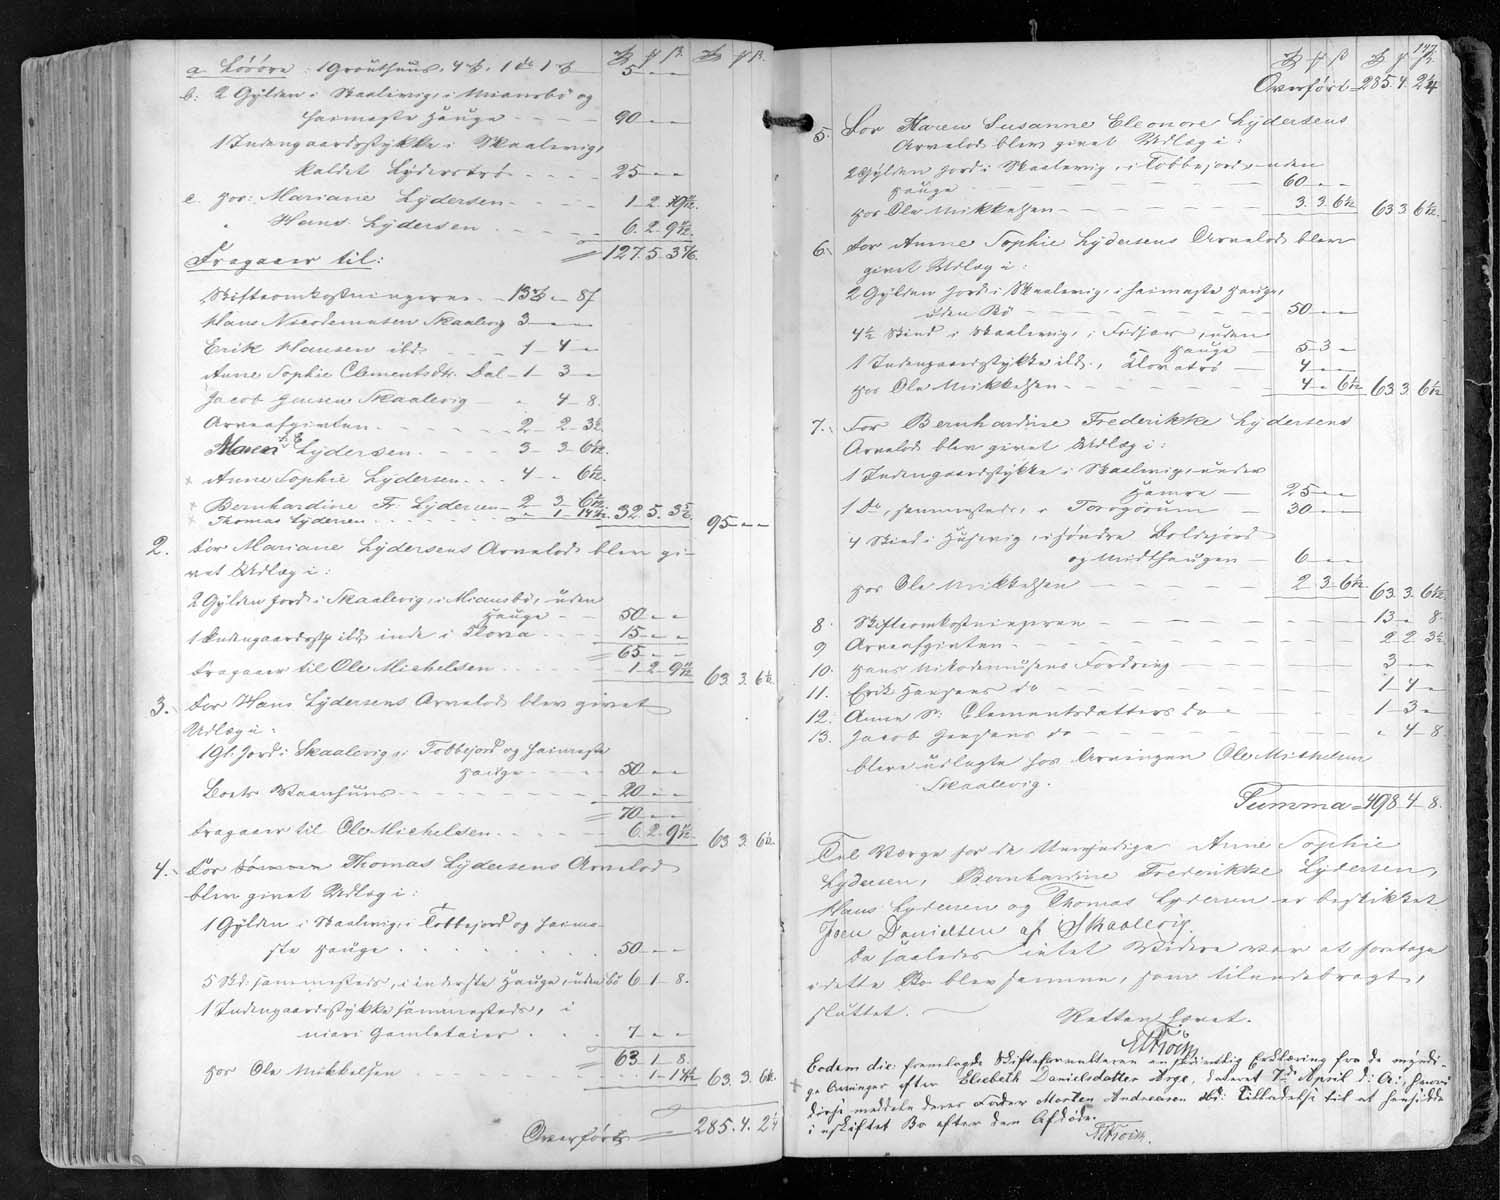 a. Lööore: 1 Gröuthuus, 4 ₰, 1 do 1 ₰ 5 " "
b: 2 Gylden i Skaalevig, i Miansbö og
haimaste Hauge - - - - 90 " "
1 Indengaardsstykke i Skaalevig,
kaldet Lyderströ - - - - 25 " "
c. hos: Mariane Lÿdersen - - - - 1. 2.
" Hans Lÿdersen - - - - 6. 2. 9
127. 5. 3
Fragaaer til:
Skifteomkostningerne - 13 " 8
Hans Nicodemusen Skaalevig 3 " "
Erik Hansen ibd. - - - 1 - 4 "
Anne Sophie Clementsdtr. Dal - 1 3 "
Jacob Jensen Skaalevig - " 4 - 8.
Arveafgivten - - - - - 2 - 2 - 3½
Maren S. E. Lÿdersen - - - - 3 - 3 - 6½.
Anne Sophie Lÿdersen - - - 4 - " 6½.
Bernhardine Fr Lÿdersen - 2 - 3 - 6½
Thomas Lydersen - - - - - " 1 - 14½. 32. 5. 3 95 " "
2. For Mariane Lÿdersens Arvelod blev gi-
vet Udlæg i:
2 Gylden Jord i Skaalevig, i Miansbö, uden
Hauge - - 50 " "
1 Indengaardsst ibd: inde i Flovia - - - 15 " "
65 " "
Fragaaer til Ole Michelsen - - - - 1. 2. 9 63. 3. 6½.
3. For Hans Lÿdersens Arvelod blev givet
Udlæg i:
1 Gl. Jord i Skaalevig, i Tobbejord og haimeste
Hauge - - - - 50 " "
Boets Vaanhuus - - - - - - 20 " "
70 " "
Fragaaer til Ole Michelsen - - - - 6. 2. 9 63. 3. 6½.
4. For Sönnen Thomas Lÿdersens Arvelod
blev givet Udlæg i:
1 Gylden i Skaalevig, i Tobbejord og haima-
ste Hauge - - - - - 50 " "
5 Skd: sammesteds, i inderste Hauge, uden bö 6 - 1 - 8.
1 Indengaardsstykke sammesteds, i
niari Gamletaier - - - 7 " "
63. 1 - 8.
hos Ole Mikkelsen - - - - - 1 - 14½ 63. 3. 6½.
Overført 285. 4. 2¼
147.
Overført 285. 4. 2¼
5. For Maren Susanne Eleonore Lydersens
Arvelod blev givet Udlæg i:
2 Gÿlden Jord i Skaalevig, i Tobbejord, uden
Hauge - - - - - - 60 " "
hos Ole Mikkelsen - - - - - - 3. 3. 6½ 63. 3. 6½.
6. For Anne Sophie Lÿdersens Arvelod blev
givet Udlæg i:
2 Gÿlden Jord i Skaalevig, i haimaste Hauge,
uden Bö - - - - - - 50 " "
4½ Skind i Skaalevig, i Fodsar, uden
Hauge - 5 - 3 "
1 Indengaardsstykke ibd., Klovatrö - 4 " "
hos Ole Mikkelsen - - - - - - 4 " 6½ 63. 3. 6½
7. For Bernhardine Frederikke Lydersens
Arvelod blev givet Udlæg i:
1 Indengaardsstykke i Skaalevig, under
Hamra - 25 " "
1 Do, sammesteds, i Torogörum - 30 " "
4 Skind i Husevig, i söndre Boldejörd
og Midthaugen - 6 " "
hos Ole Mikkelsen - - - - - 2 3 - 6½ 63. 3. 6½
8. Skifteomkostningerne - - - - - - - 13 " 8.
9 Arveafgivten - - - - - - - 2. 2. 3½
10. Hans Nikodemusens Fordring - - - - 3 " "
11. Erik Hansens do - - - - - - - 1 - 4 "
12. Anne S. Clementsdatters do - - - - - 1 - 3 "
13. Jacob Jensens do - - - - - - - " 4 - 8.
bleve udlagte hos Arvingen Ole Michelsen
Skaalevig.
Summa 498. 4 - 8.
Til Værge for de Umyndige Anne Sophie
Lydersen, Bernhardine Frederikke Lÿdersen,
Hans Lydersen og Thomas Lydersen er beskikket
Joen Danielsen af Skaalevig.
Da saaledes intet Videre var at foretage
i dette Bo blev samme, som tilendebragt,
sluttet. Retten hævet.
Eodem die: fremlagde Skifteforvalteren en skriftlig Erklæring fra de myndi-
ge Arvinger efter Elsebeth Danielsdatter Arge, dateret 7de April d: A:, hvori
disse meddele deres Fader Morten Andreasen ibd: Tilladelse til at hensidde
i uskiftet Bo efter den Afdöde.